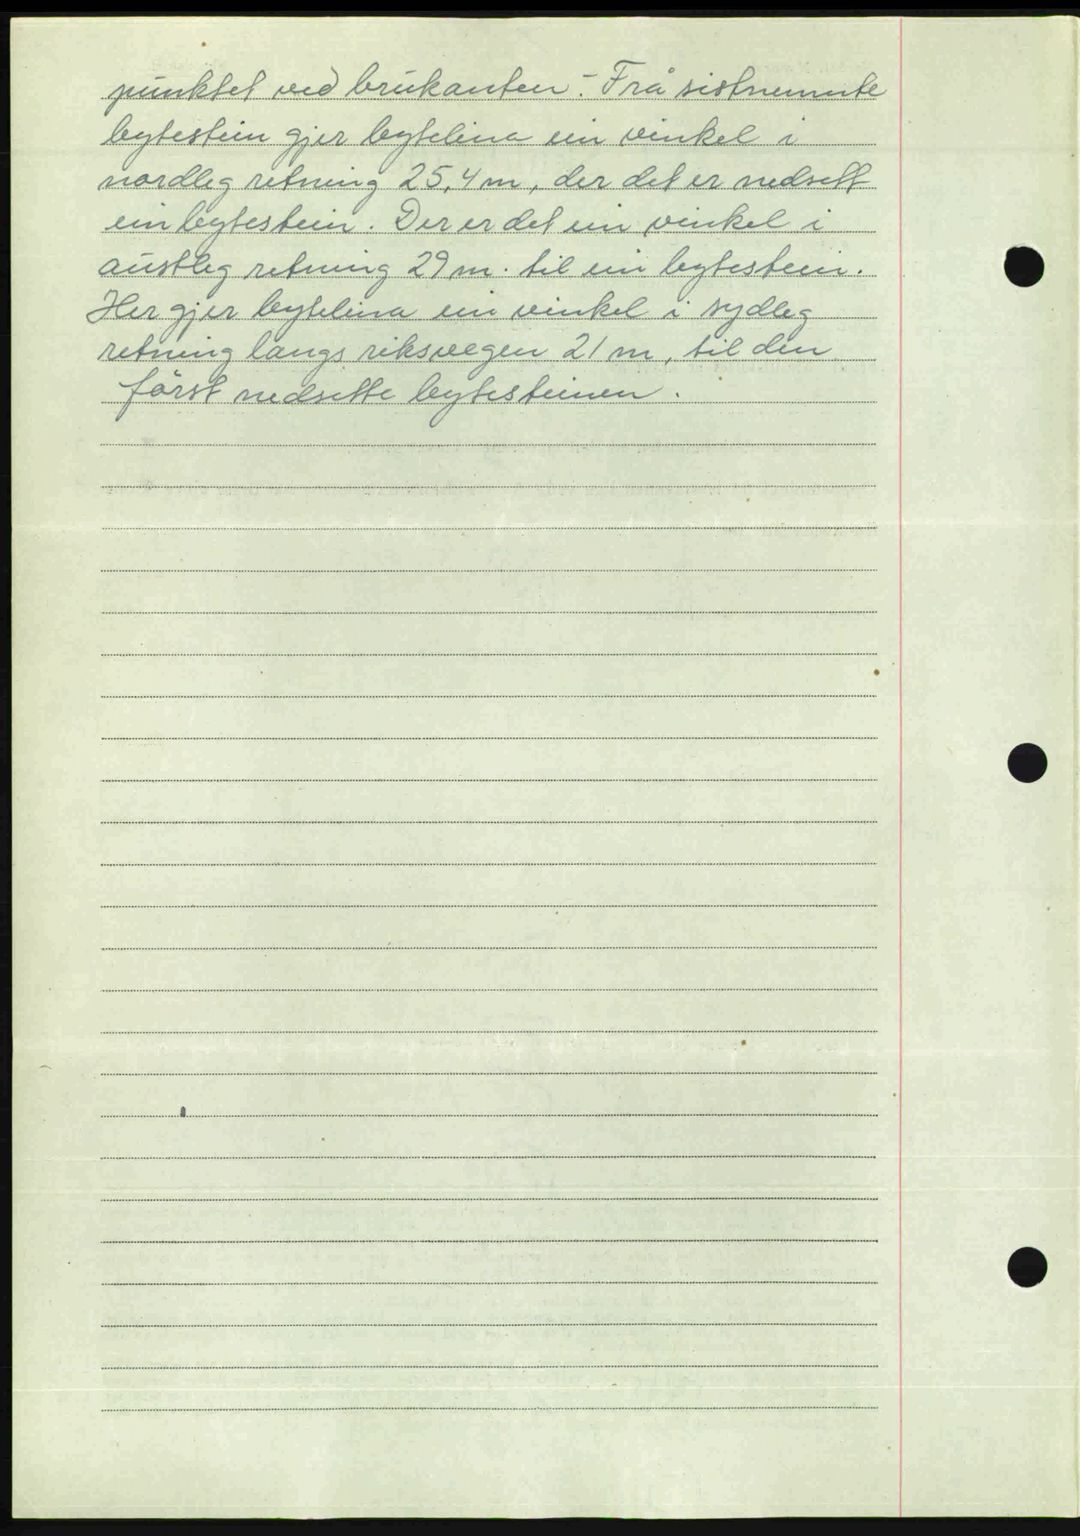 punktet ved brukanten.- Frå sistnemnte
bytestein gjer bytelina ein vinkel i
nordleg retning 25,4 m, der det er nedsett
ein bytestein. Der er det ein vinkel i
austleg retning 29 m. til ein bytestein.
Her gjer bytelina ein vinkel i sydleg
retning langs riksvegen 21 m, til den
först nedsette bytesteinen.